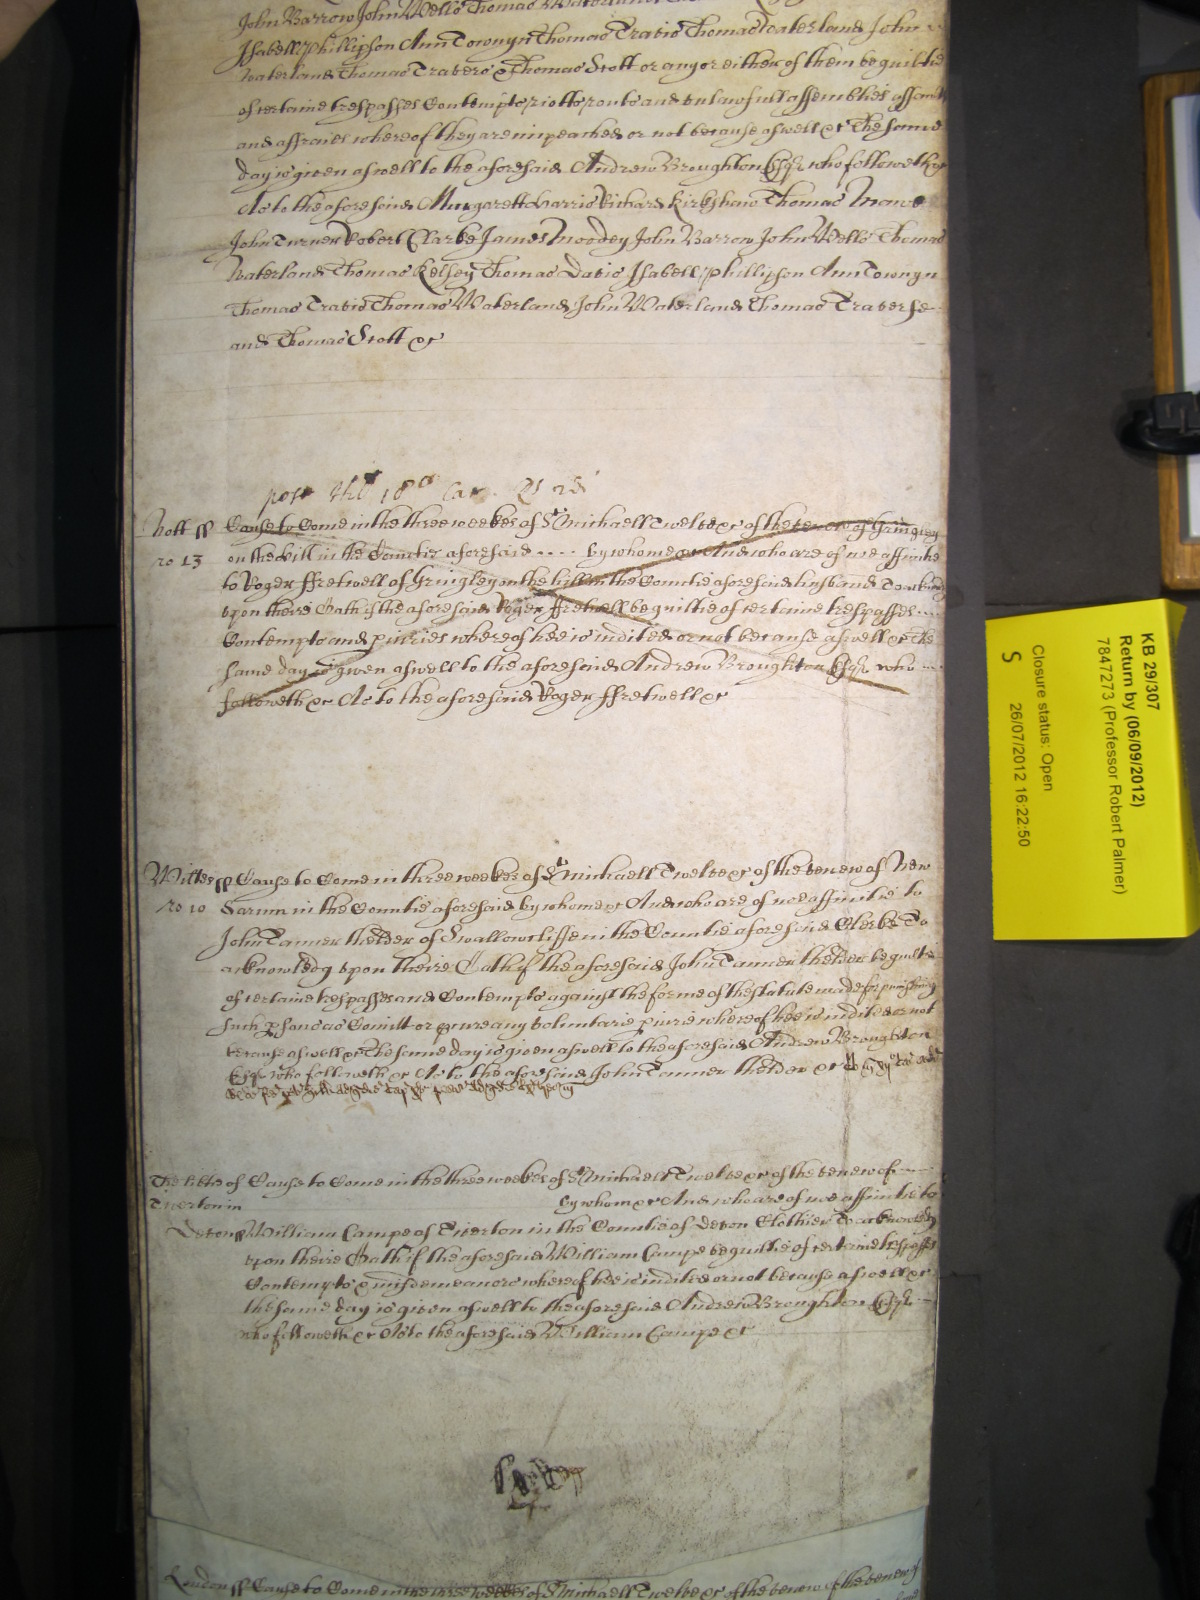 John Barrow John Wells Thomas
Isabell Phillipson Ann Townyn Thomas Travis Thomas Waterland John
Waterland Thomas Travers & Thomas Stott or any or either of them be guiltie
of certaine trespasses Contempts riotts routs and unlawfull assemblies assaults
and affraies whereof they are impeached or not because aswell &c The same
day is given aswell to the aforesaid Andrew Broughton Esqr who followeth &c
As to the aforesaid Margarett Harris Richard Kirkshaw Thomas Mawe
John Turner Robert Clarke James Moodey John Barrow John Wells Thomas
Waterland Thomas Kelsey Thomas Davis Isabell Phillipson Ann Townyn
Thomas Travis Thomas Waterland John Waterland Thomas Traverse
and Thomas Stott &c
post 18
Nott ss Cause to Come in the three weekes of St Michaell Twelve &c of the venew of Gringley
ro 13 on the hill in the Countie aforesaid .... by whome &c And who are of noe affinitie
to Roger ffretwell of Gringley on the hill in the Countie aforesaid husband To acknowl
upon theire Oath if the aforesaid Roger ffretwell be guiltie of certaine trespasses ....
Contempts and iniuries whereof hee is indited or not because aswell &c The
same day is given aswell to the aforesaid Andrew Broughton Esqr who ....
followeth &c As to the aforesaid Roger ffretwell &c
Wiltes ss Cause to Come in three weekes of St Michaell Twelve &c of the venew of New
ro 10 Sarum in the Countie aforesaid by whome &c And who are of noe affinitie to
John Tanner thelder of Swallowcliffe in the Countie aforesaid Clerke To
acknowledg upon theire Oath if the aforesaid John Tanner thelder be guiltie
of certaine trespasses and Contempts against the forme of the statute made for punishing
such psons as Comitt or pcure any voluntarie piurie whereof hee is indited or not
because aswell &c The same day is given aswell to the aforesaid Andrew Broughton
Esqr who followeth &c As to the aforesaid John Tanner thelder &c
The Cittie of Cause to Come in the three weekes of St Michaell Twelve &c of the venew of ....
Tiverton in by whom &c And who are of noe affinitie to
Devon ss William Campe of Tiverton in the Countie of Devon Clothier To acknowledg
upon theire Oath if the aforesaid William Campe be guiltie of certaine trespasses
Contempts & misdemeanors whereof hee is indited or not because aswell &c
the same day is given aswell to the aforesaid Andrew Broughton Esqr ....
who followeth &c As to the aforesaid William Campe &c
London ss Cause to Come in the three weekes of St Michaell Twelve &c of the venew of the venew of
KB 29/307
Return by (06/09/2012)
7847273 (Professor Robert Palmer)
Closure status: Open
S 26/07/2012 16:22:50